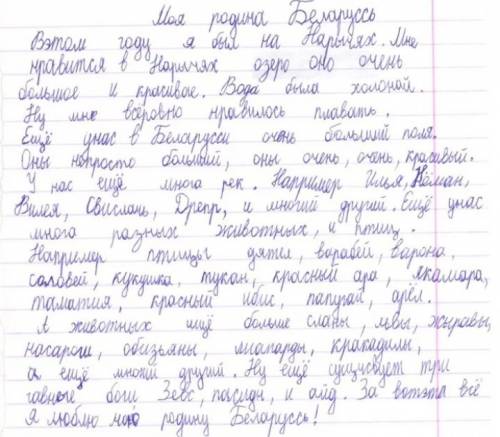 Моя родина Беларуссь
Вэтом году я был на Нарычях. Мне
нравится в Нарычях озеро оно очень
большое и красивае. Вода была холоной.
Ну мне всёровно нравилось плавать.
Ещё унас в Беларусси очень большии поля.
Оны непросто большии, оны очень, очень, красивый.
У нас ещё многа рек. Например Илья, Нёман,
Вилея, Свислачь, Дрепр, и многий другий. Ещё унас
многа разных животных и птиц.
Например птицы дятел, варабей, варона,
саловей, кукушка, тукан, красный ара, якамара,
таматия, красный ибис, папугай, арёл.
А животных ищё больше сланы, львы, жыравы,
насароги, обизьяны, лиапарды, кракадилы,
а ещё многий другий. Ну ещё сущиствует три
гавные боги Зевс, пасидн, и аид. За вотэта всё
Я люблю маю родину Беларуссь!